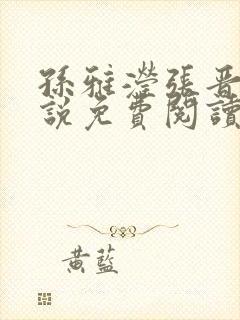 孫雅瀅張晉
說免費閱讀
黃藍